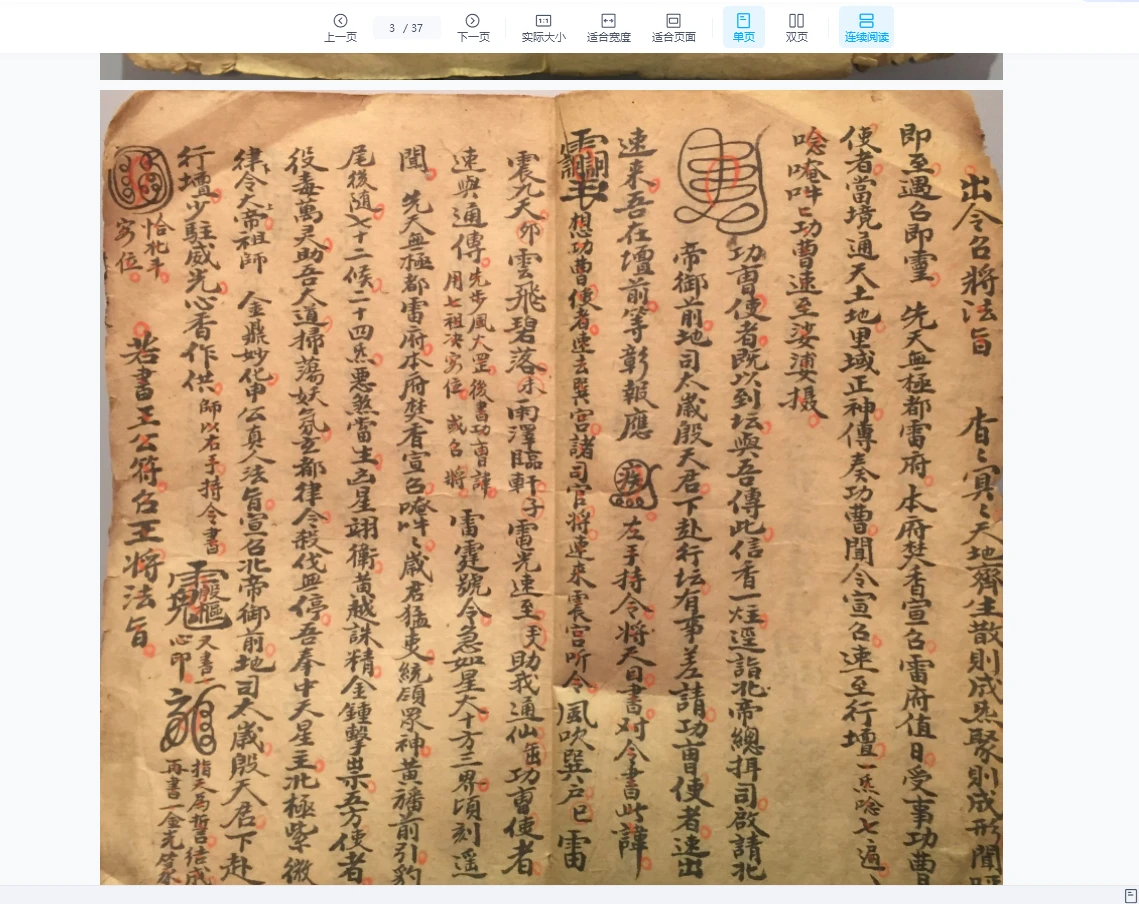 上一页
3 / 37
下一页
1:1
实际大小
适合宽度
适合页面
单页
双页
连续阅读
出令召將法旨 杳〻冥〻天地齊生散則成炁聚則成形聞
即至遇召即靈 先天無極都雷府本府焚香宣召雷府值日受事功曹
使者當境通天土地里域正神傳奏功曹聞令宣召速至行壇一炁唸七遍
唸唵吽〻功曹速至娑婆攝
功曹使者既以到坛與吾傳此信香一炷逕詣北帝總揖司啟請北
帝御前地司太歲殷天君下赴行坛有事差請功曹使者速出
速來吾在壇前等彰報應 左手持令將天目書对令書此諱
想功曹使者速去巽宮諸司官將速來震宮听令風吹巽戶巳雷
震九天卯雲飛碧落未雨澤臨軒子雷光速至天助我通仙功曹使者
速與通傳先步風火罡後書功曹諱
用七祖决 位 或召將
雷霆號令急如星火十方三界頃刻遥
聞 先天無極都雷府本府焚香宣召唵吽〻歲君猛吏統領眾神黃旛前引豹
尾後隨七十二候二十四炁惡煞當生凶星翊衛黃越誅精金鍾擊出示五方使者
役毒萬灵助吾大道掃蕩妖氛玄都律令殺伐無停吾奉中天星主北極紫微
律令大帝祖師 金鼎妙化申公真人法旨宣召北帝御前地司太歲殷天君下赴
行壇少駐威光心香作供師以右手持令書
又書一
心印
指天為 結成
再書一金光篆
恰北斗
位
若書王公符召王將法旨